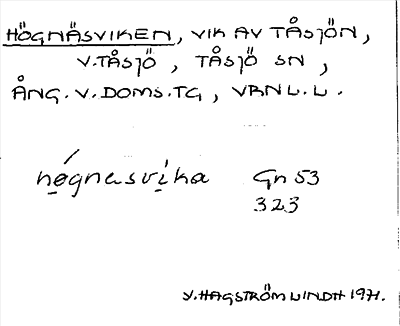 HÖGNÄSVIKEN, VIK AV TÅSJÖN,
V.TÅSJÖ, TÅSJÖ SN,
ÅNG.V.DOMS.TG, VRNL.L.
høgnasvika Gn 53
323
V.HAGSTRÖM LINDH 1971.